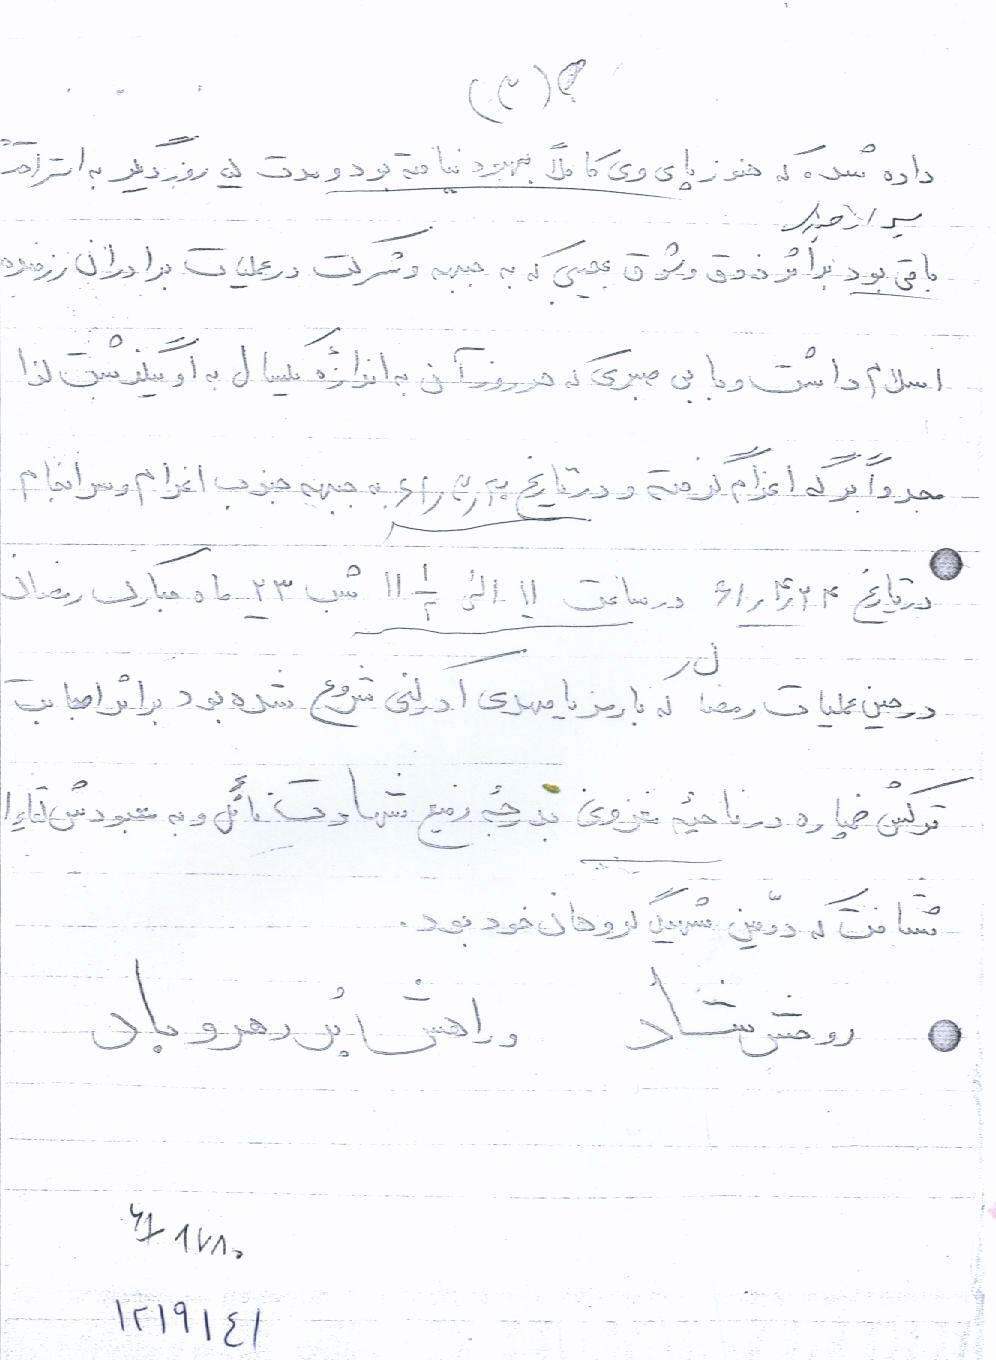 (۳)
داده شده که هنوز پای وی کاملاً بهبود نیافته بود و مدت روز دیگر به استراحت
باقی بود براثر ذوق و شوق عجیبی که به جبهه و شرکت در عملیات برادران رزمنده
اسلام داشت و با بی صبری که هر روز آن به اندازه یکسال به او میگذشت لذا
مجدداً برگه اعزام گرفته و در تاریخ ۶۱/۳/۲۰ به جبهه جنوب اعزام و سرانجام
در تاریخ ۶۱/۴/۲۴ در ساعت ۱۱ الی ۱۱ ۱/۲ شب ۲۳ ماه مبارک رمضان
در حین عملیات رمضان که با رمز یا مهدی ادرکنی شروع شده بود براثر اصابت
ترکش خمپاره در ناحیه بدرجهٔ رفیع شهادت نائل و به معبودش لقاءا
شتافت که دوّمین شهید گروهان خود بود.
روحش شاد و راهش پُر رهرو باد
۱۲۱۹۱۴۱